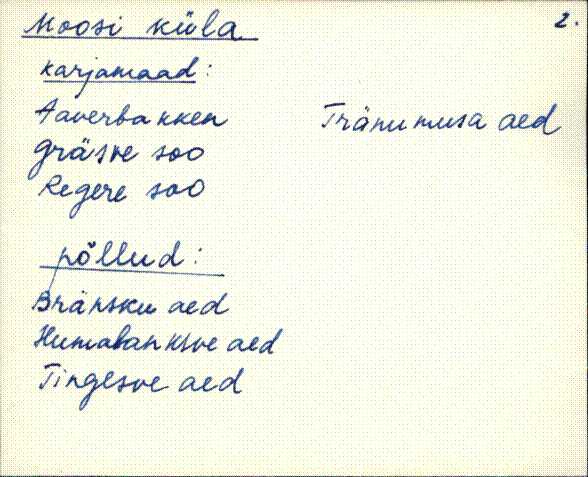 Moosi küla
2.
Karjamaad:
Aaverbakken
Tränumusa aed
Gräsve soo
Regere soo
põllud:
Bränsku aed
Humalanksve aed
Tingesve aed